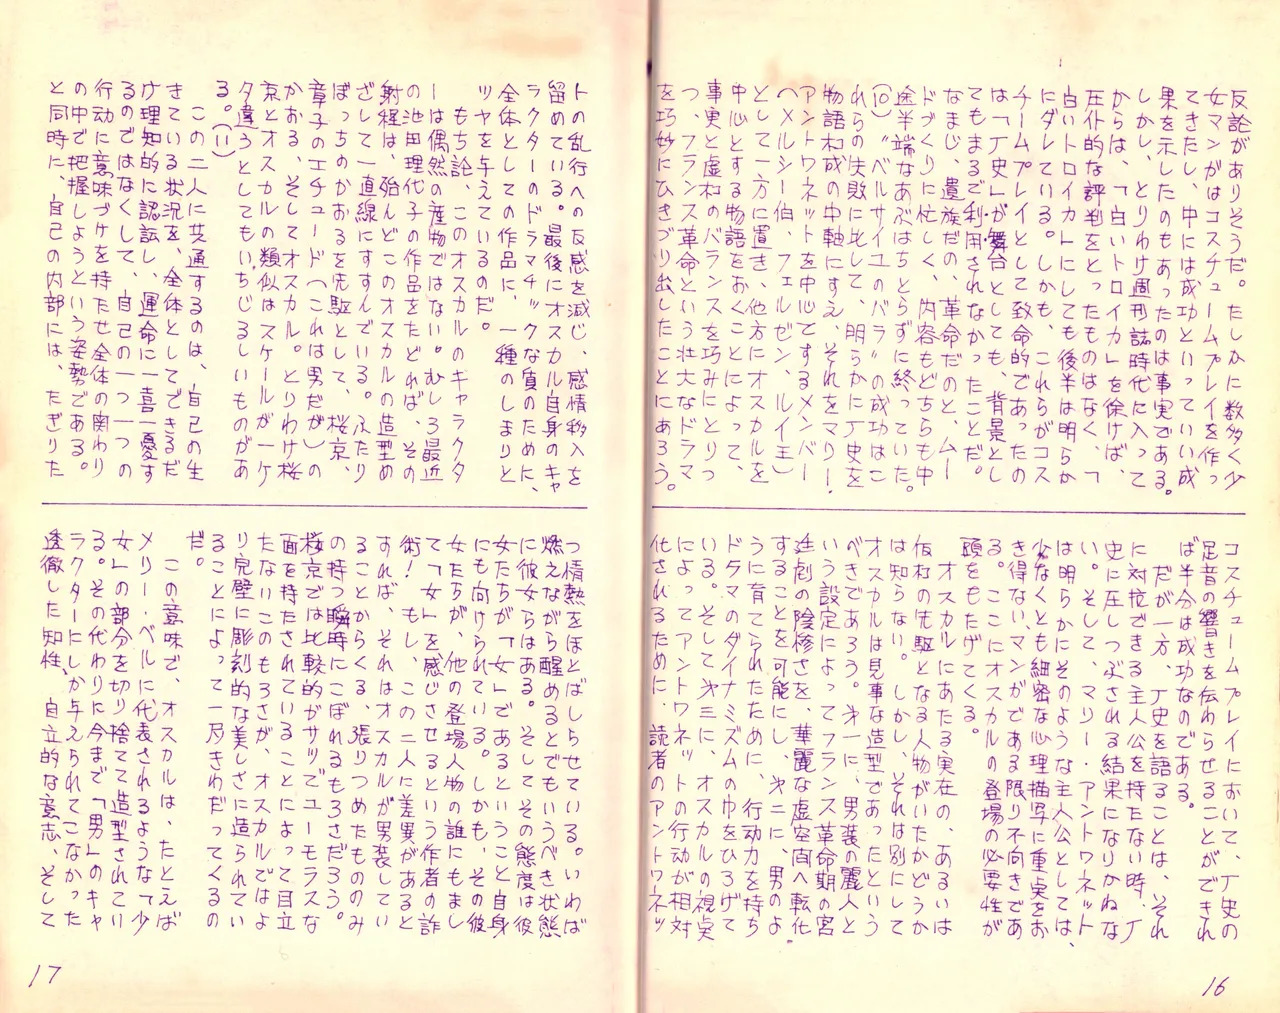 反論がありそうだ。たしかに数多く少
女マンガはコスチュームプレイを作っ
てきたし、中には成功といっていい成
果を示したのもあったのは事実である。
しかし、とりわけ週刊誌時代に入って
からは、「白いトロイカ」を除けば、
圧仆的な評判をとったものはなく、「
白いトロイカ」にしても後半は明らか
にダレている。しかも、これらがコス
チームプレイとして致命的であったの
は「丁史」が舞台としても、背景とし
てもまるで利用されなかったことだ。
なまじ、遺族だの、革命だのと、ムー
ドづくりに忙しく、内容もどちらも中
途半端なあぶはちとらずに終っていた。
(10)〝ベルサイユのバラ〟の成功はこ
れらの失敗に比して、明らかに丁史を
物語构成の中軸にすえ、それをマリー・
アントワネットを中心てするメンバー
(メルシー伯、フェルゼン、ルイ王)
として一方に置き、他方にオスカルを
中心とする物語をおくことによって、
事実と虚构のバランスを巧みにとりつ
つ、フランス革命という壮大なドラマ
を巧妙にひきづり出したことにあろう。
コスチュームプレイにおいて、丁史の
足音の響きを伝わらせることができれ
ば半分は成功なのである。
だが一方、丁史を語ることは、それ
に対抗できる主人公を持たない時、丁
史に圧しつぶされる結果になりかねな
い。そして、マリー・アントワネット
は明らかにそのような主人公としては、
少なくとも細密な心理描写に重点をお
き得ないマンガである限り不向きであ
る。ここにオスカルの登場の必要性が
頭をもたげてくる。
オスカルにあたる実在の、あるいは
仮构の先駆となる人物がいたかどうか
は知らない。しかし、それは別にして
オスカルは見事な造型であったという
べきであろう。才一に、男装の麗人と
いう設定によってフランス革命期の宮
廷劇の陰惨さを、華麗な虚空間へ転化
することを可能にし、才二に、男のよ
うに育てられたために、行動力を持ち
ドラマのダイナミズムの巾をひろげて
いる。そして才三に、オスカルの視点
によってアントワネットの行動が相対
化されるために、読者のアントワネッ
トの乱行への反感を減じ、感情移入を
留めている。最後にオスカル自身のキャ
ラクターのドラマチックな質のために、
全体としての作品に、一種のしまりと
ツヤを与えているのだ。
もち論、このオスカルのキャラクタ
ーは偶然の産物ではない。むしろ最近
の池田理代子の作品をたどれば、その
射程は、殆んどこのオスカルの造型め
ざして一直線にすすんでいる。ふたり
ぼっちのかおるを先駆として、桜京、
章子のエチュード(これは男だが)の
かおる、そしてオスカル。とりわけ桜
京とオスカルの類似はスケールが一ケ
タ違うとしてもいちじるしいものがあ
る。(11)
この二人に共通するのは、自己の生
きている状況を、全体としてできるだ
け理知的に認訟し、運命に一喜一憂す
るのではなくして、自己の一つ一つの
行動に意味づけを持たせ全体の関わり
の中で把握しようという姿勢である。
と同時に、自己の内部には、たぎりた
つ情熱をほとばしらせている。いわば
燃えながら醒めるとでもいうべき状態
に彼女らはある。そしてその態度は彼
女たちが「女」であるということ自身
にも向けられている。しかも、その彼
女たちが、他の登場人物の誰にもまし
て「女」を感じさせるという作者の詐
術!もし、この二人に差異があると
すれば、それはオスカルが男装してい
ることからくる、張りつめたもののみ
の持つ瞬時にこぼれるもろさだろう。
桜京では比較的ガサツでユーモラスな
面を持たされていることによって目立
たないこのもろさが、オスカルではよ
り完璧に彫刻的な美しさに造られてい
ることによって一乃きわだってくるの
だ。
この意味で、オスカルは、たとえば
メリー・ベルに代表されるような「少
女」の部分を切り捨てて造型されてい
る。その代わりに今まで「男」のキャ
ラクターにしか与えられてこなかった
透徹した知性、自立的な意志、そして
16
17